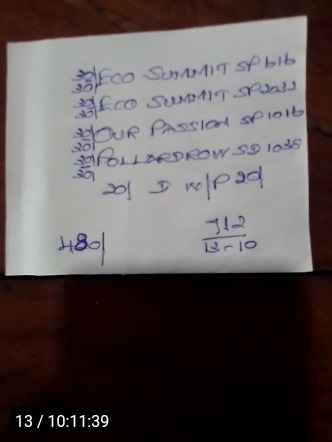 30/ ECO SUMMIT SP 616
30/ ECO SUMMIT SP
30/ OUR PASSION SP 1016
30/ POLLARDROW SD 1035
20/ D W/P 20/
480/
J12
13-10
13 / 10:11:39